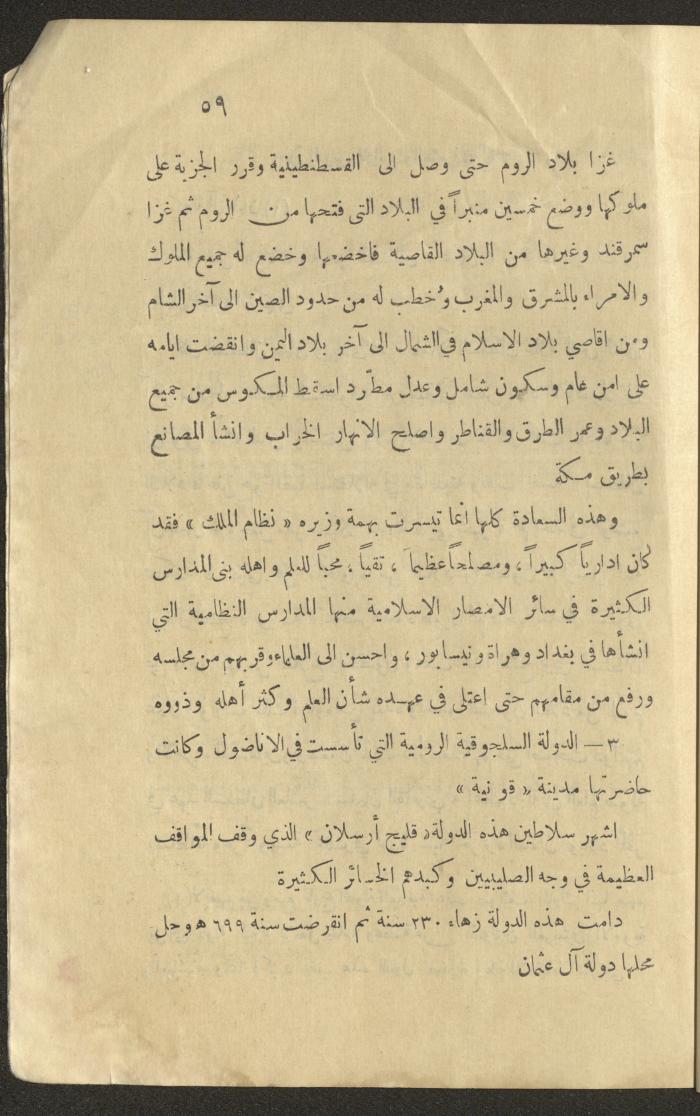 ٥٩
غزا بلاد الروم حتى وصل الى القسطنطينية وقرر الجزية على
ملوكها ووضع خمسين منبراً في البلاد التى فتحها من الروم ثم غزا
سمرقند وغيرها من البلاد القاصية فاخضعها وخضع له جميع الملوك
والامراء بالمشرق والمغرب وخُطب له من حدود الصين الى آخر الشام
ومن اقاصي بلاد الاسلام في الشمال الى آخر بلاد اليمن وانقضت ايامه
على امن عام وسكون شامل وعدل مطّرد اسقط المكوس من جميع
البلاد وعمر الطرق والقناطر واصلح الانهار الخراب وانشأ المصانع
بطريق مكة
وهذه السعادة كلها انما تيسرت بهمة وزيره « نظام الملك » فقد
كان ادارياً كبيراً ، ومصلحاً عظيماً ، تقياً ، محباً للعلم واهله بنى المدارس
الكثيرة في سائر الامصار الاسلامية منها المدارس النظامية التي
انشأها في بغداد وهراة ونيسابور ، واحسن الى العلماء وقربهم من مجلسه
ورفع من مقامهم حتى اعتلى في عهده شأن العلم وكثر أهله وذووه
٣ — الدولة السلجوقية الرومية التي تأسست في الاناضول وكانت
حاضرتها مدينة « قونية »
اشهر سلاطين هذه الدولة « قليج أرسلان » الذي وقف المواقف
العظيمة في وجه الصليبيين وكبدهم الخسائر الكثيرة
دامت هذه الدولة زهاء ٢٣٠ سنة ثم انقرضت سنة ٦٩٩ ه وحل
محلها دولة آل عثمان